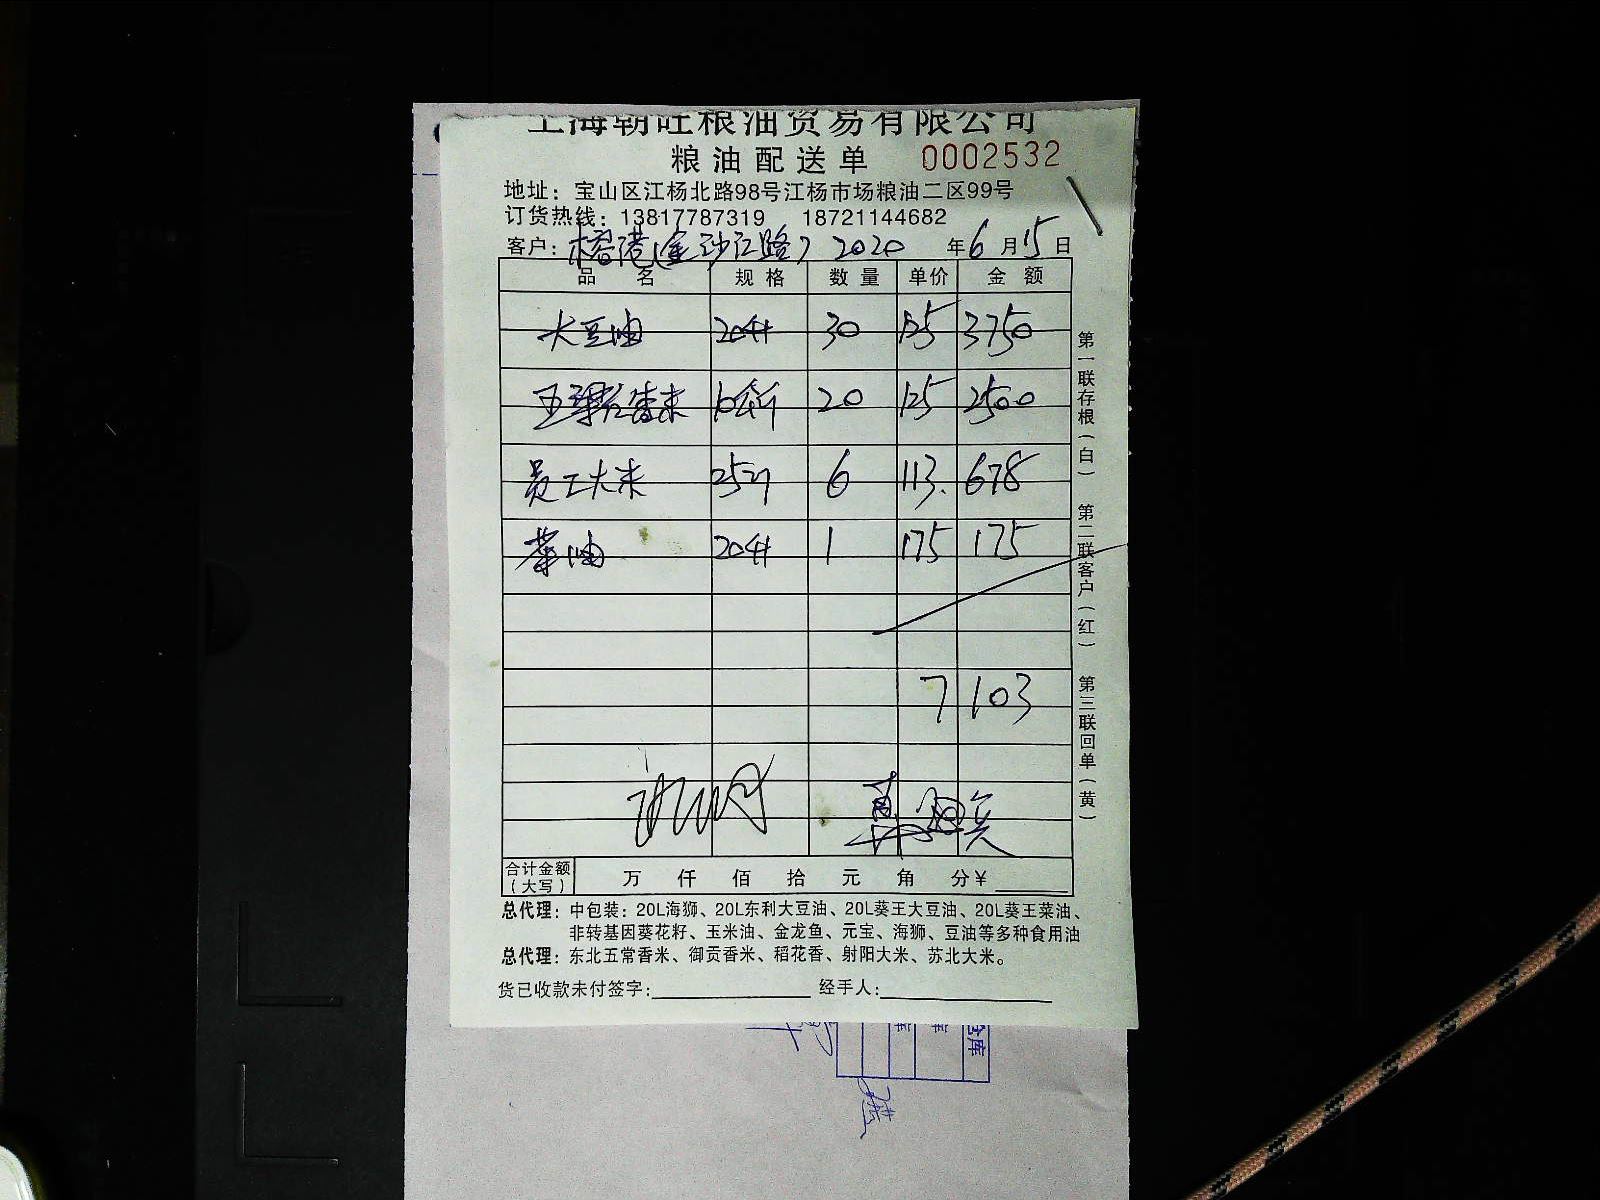 上海朝旺粮油贸易有限公司
粮油配送单 0002532
地址：宝山区江杨北路98号江杨市场粮油二区99号
订货热线：13817787319 18721144682
客户：榕港(金沙江路) 2020 年6月15日
品 名 规 格 数 量 单价 金 额
大豆油 20升 30 125 3750
香米 10公斤 20 125 2500
员工大米 25 6 113. 678
菜油 20升 1 175 175
7103
合计金额（大写） 万 仟 佰 拾 元 角 分￥
总代理：中包装：20L海狮、20L东利大豆油、20L葵王大豆油、20L葵王菜油、
非转基因葵花籽、玉米油、金龙鱼、元宝、海狮、豆油等多种食用油
总代理：东北五常香米、御贡香米、稻花香、射阳大米、苏北大米。
货已收款未付签字： 经手人：
第一联存根（白） 第二联客户（红） 第三联回单（黄）